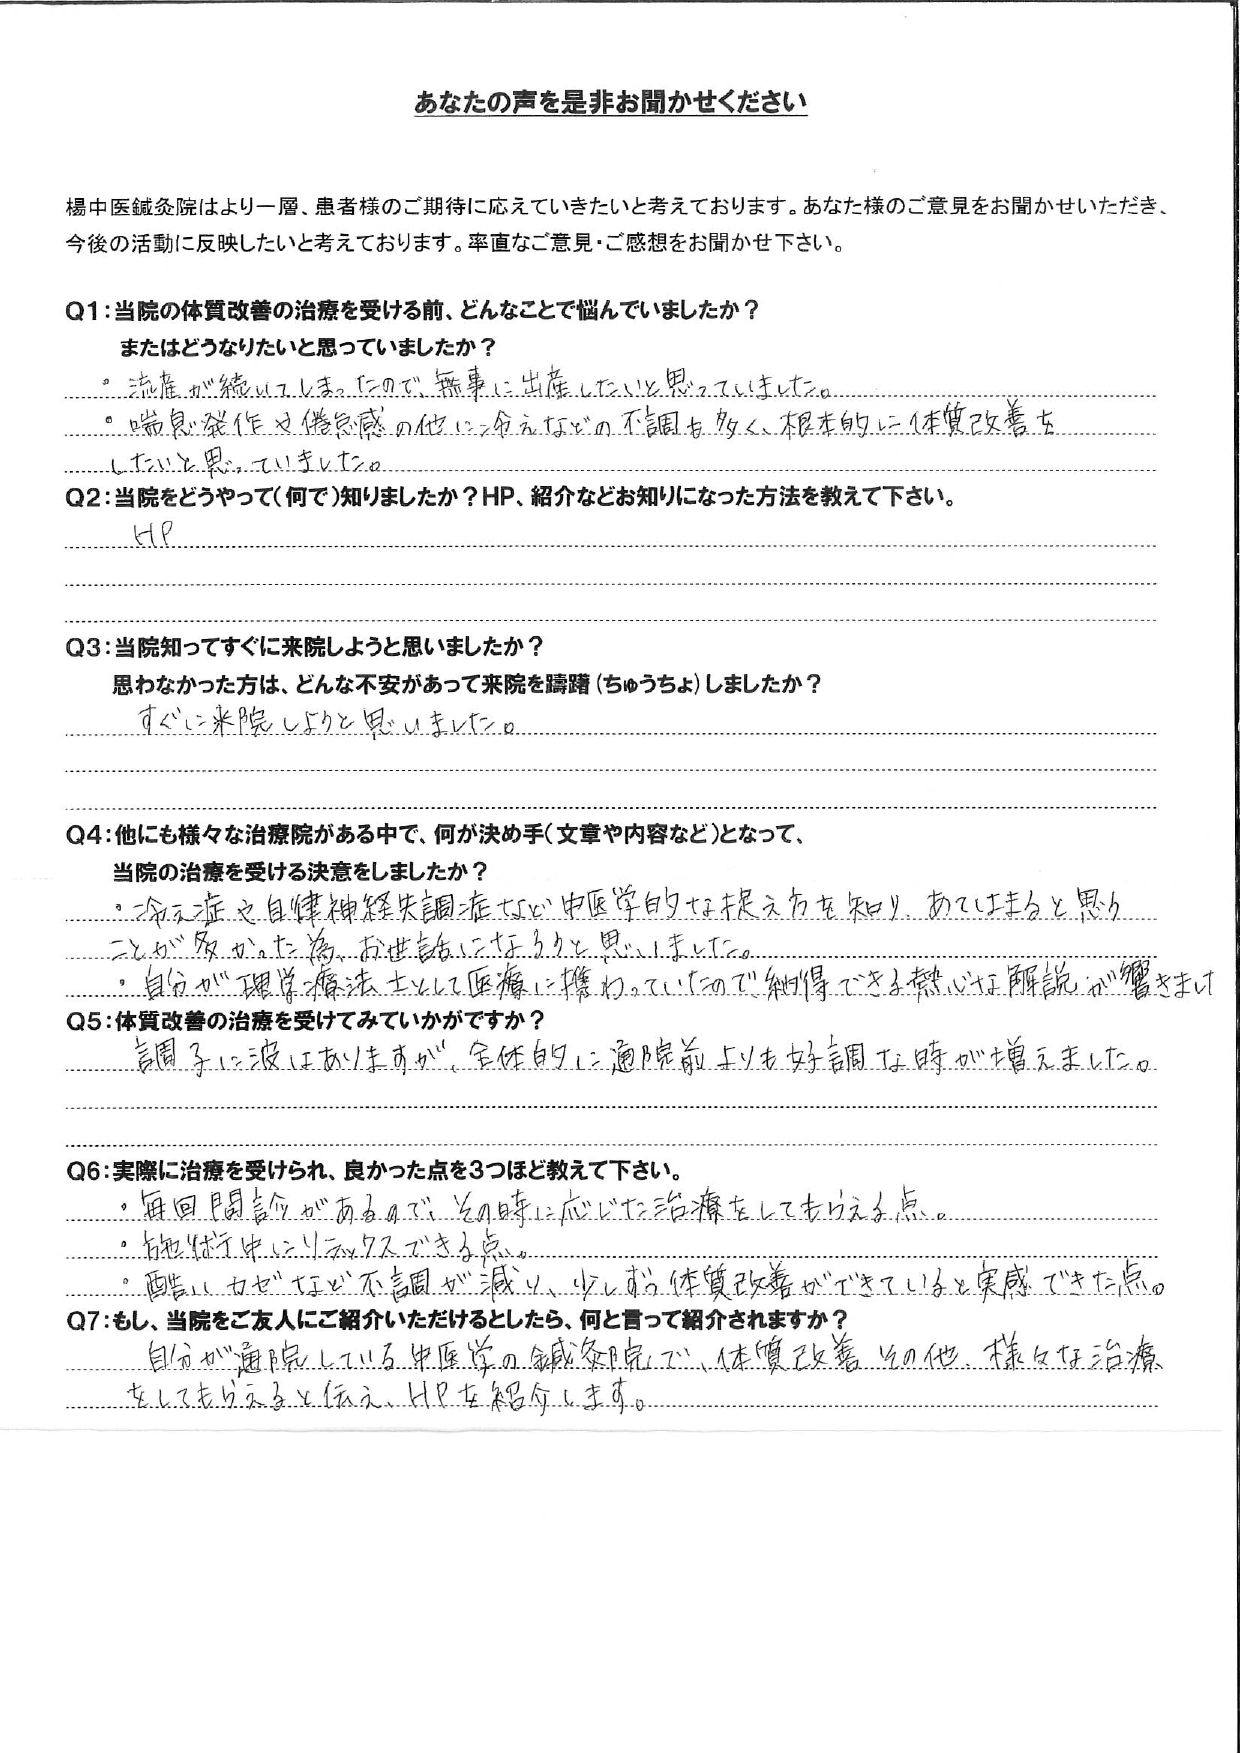 あなたの声を是非お聞かせください
楊中医鍼灸院はより一層、患者様のご期待に応えていきたいと考えております。あなた様のご意見をお聞かせいただき、
今後の活動に反映したいと考えております。率直なご意見・ご感想をお聞かせ下さい。
Q1:当院の体質改善の治療を受ける前、どんなことで悩んでいましたか？
またはどうなりたいと思っていましたか？
・流産が続いてしまったので、無事に出産したいと思っていました。
・喘息発作や倦怠感の他に冷えなどの不調も多く、根本的に体質改善を
したいと思っていました。
Q2:当院をどうやって(何で)知りましたか？HP、紹介などお知りになった方法を教えて下さい。
HP
Q3:当院知ってすぐに来院しようと思いましたか？
思わなかった方は、どんな不安があって来院を躊躇(ちゅうちょ)しましたか？
すぐに来院しようと思いました。
Q4:他にも様々な治療院がある中で、何が決め手(文章や内容など)となって、
当院の治療を受ける決意をしましたか？
・冷え症や自律神経失調症など中医学的な捉え方を知り、あてはまると思う
ことが多かった為、お世話になろうと思いました。
・自分が理学療法士として医療に携わっていたので納得できる熱心な解説が響きまし
Q5:体質改善の治療を受けてみていかがですか？
調子に波はありますが、全体的に通院前よりも好調な時が増えました。
Q6:実際に治療を受けられ、良かった点を3つほど教えて下さい。
・毎回問診があるので、その時に応じた治療をしてもらえる点。
・施術中にリラックスできる点。
・酷いカゼなど不調が減り、少しずつ体質改善ができていると実感できた点。
Q7:もし、当院をご友人にご紹介いただけるとしたら、何と言って紹介されますか？
自分が通院している中医学の鍼灸院で、体質改善その他、様々な治療
をしてもらえると伝え、HPを紹介します。